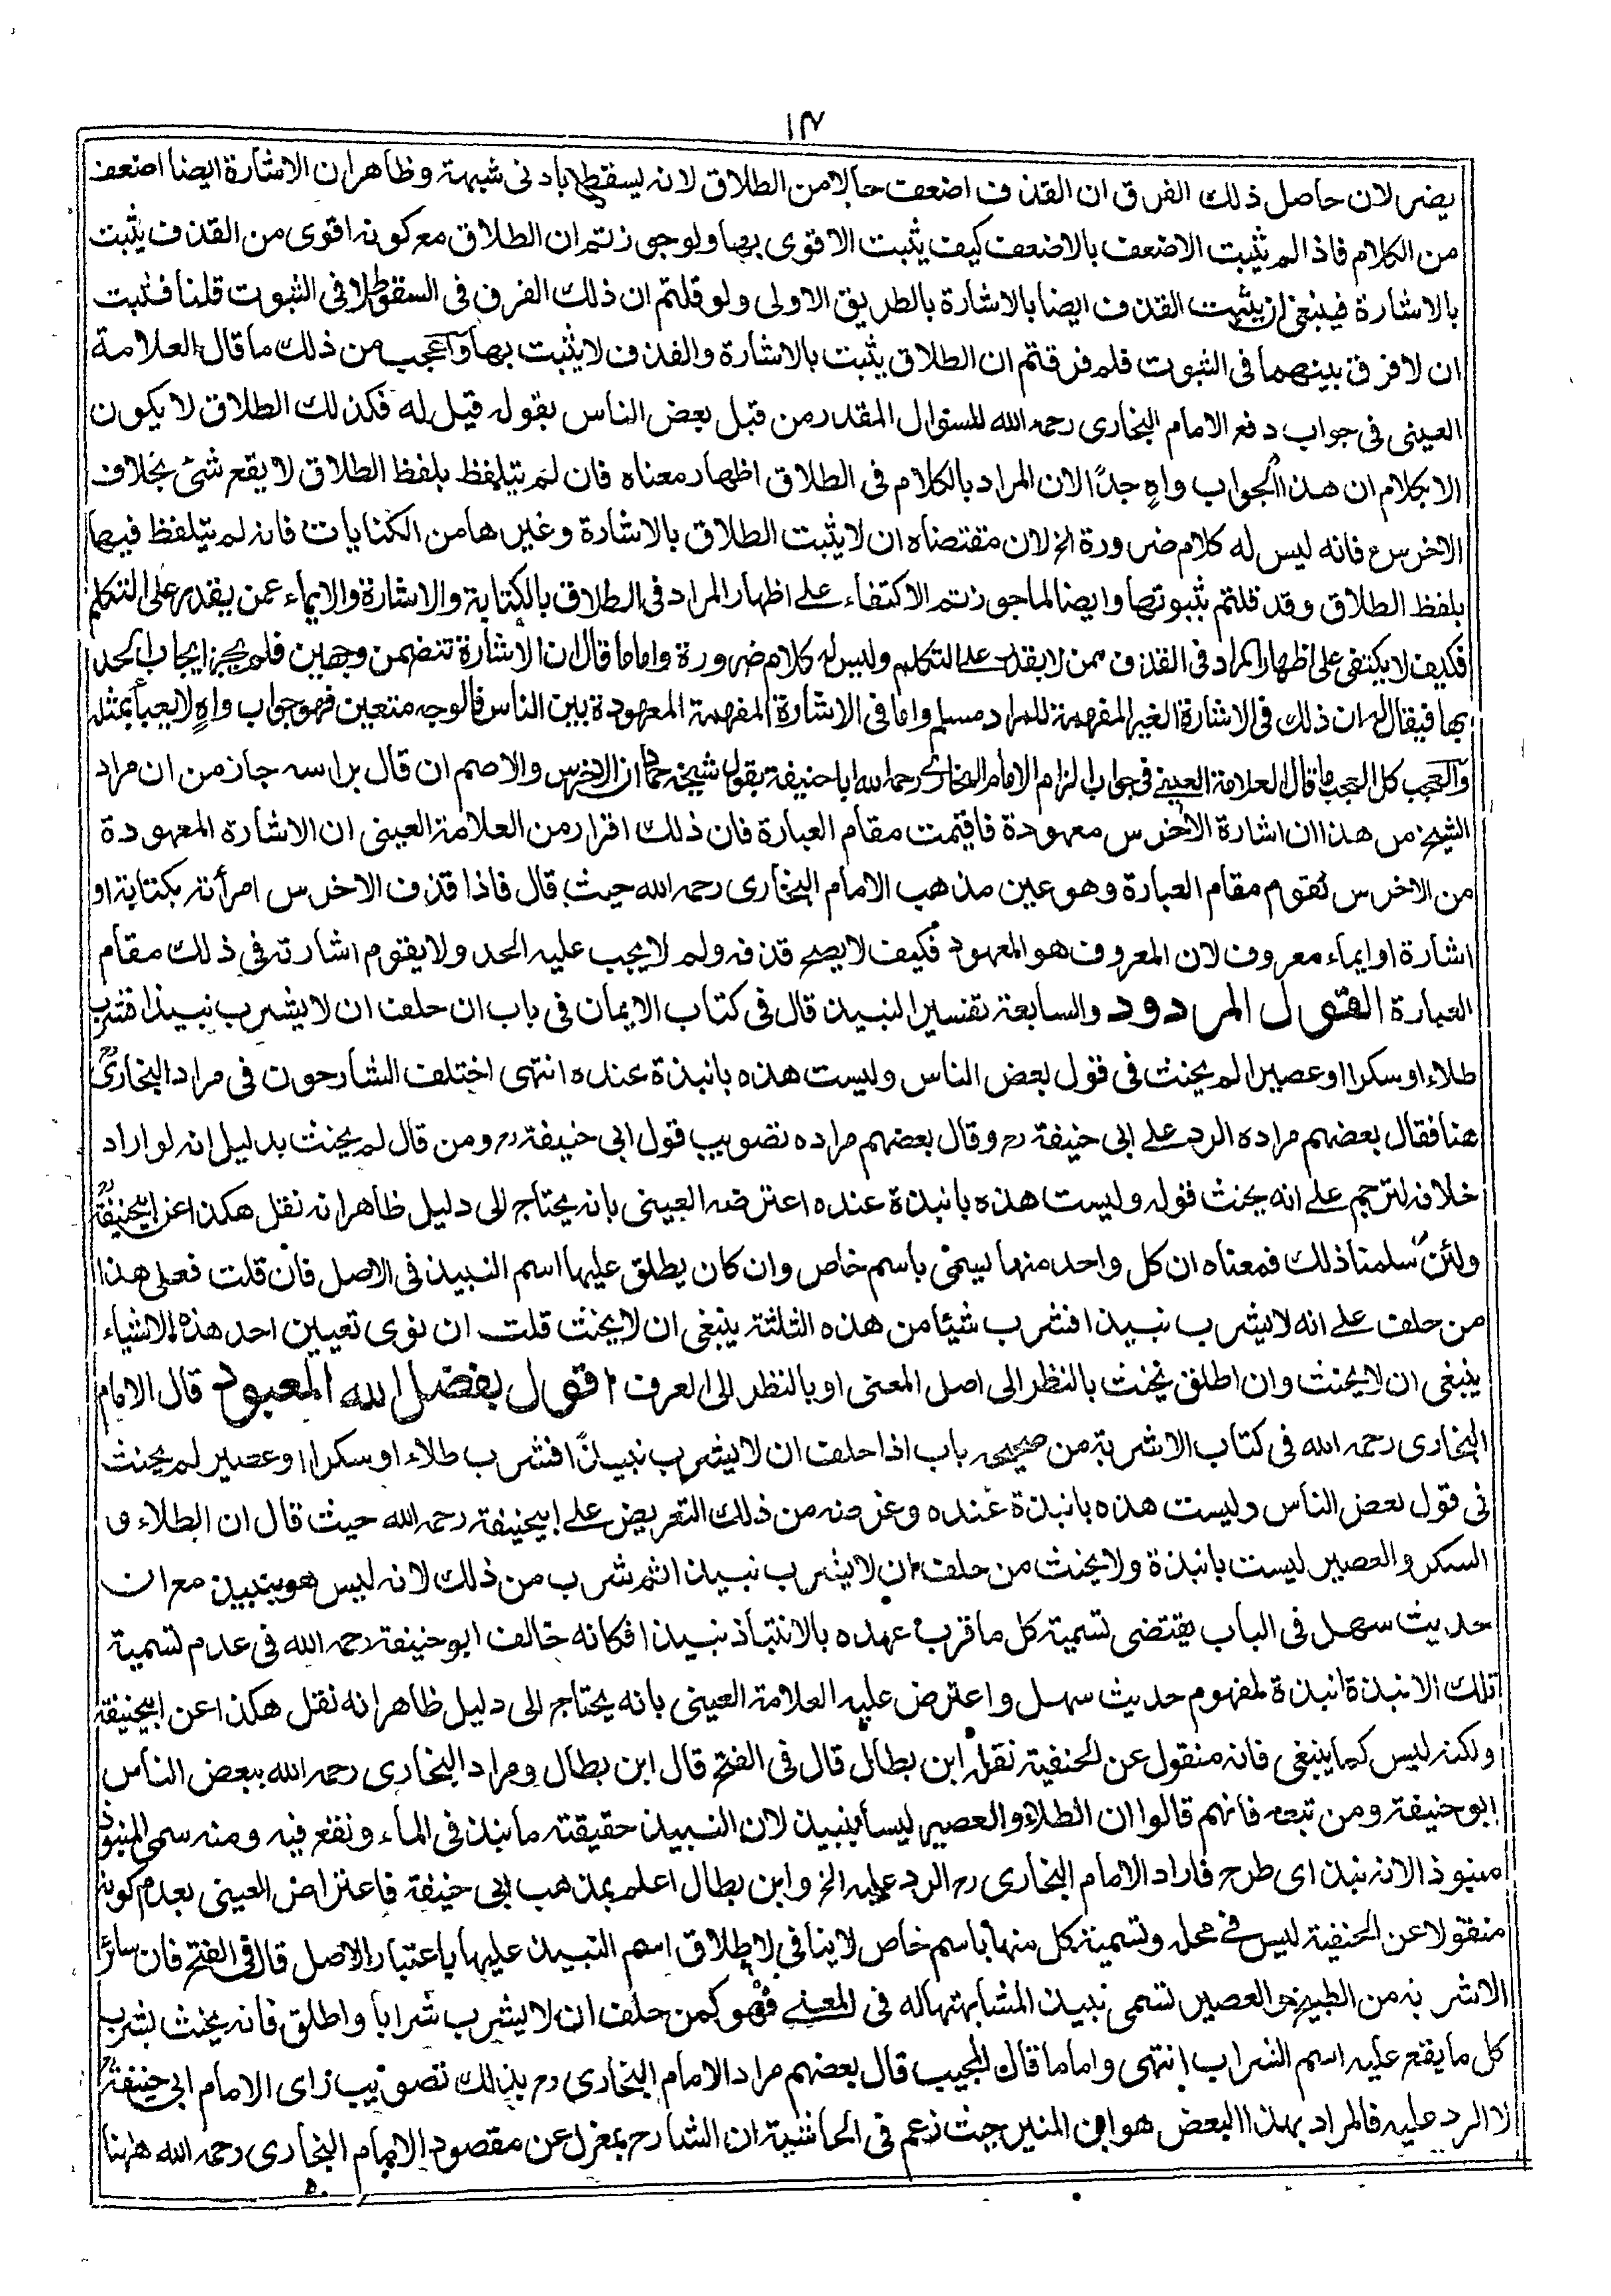 ١٧
يضر لان حاصل ذلك الفرق ان القذف اضعف حالا من الطلاق لانه يسقط بادنى شبهة وظاهر ان الاشارة ايضا اضعف
من الكلام فاذا لم يثبت الاضعف بالاضعف كيف يثبت الاقوى بها ولو جوزتم ان الطلاق مع كونه اقوى من القذف يثبت
بالاشارة فينبغى ان يثبت القذف ايضا بالاشارة بالطريق الاولى ولو قلتم ان ذلك الفرق فى السقوط لا فى الثبوت قلنا فثبت
ان لا فرق بينهما فى الثبوت فلم فرقتم ان الطلاق يثبت بالاشارة والقذف لا يثبت بها وآعجب من ذلك ما قال العلامة
العينى فى جواب دفع الامام البخارى رحمه الله للسؤال المقدر من قبل بعض الناس بقوله قيل له فكذلك الطلاق لا يكون
الا بكلام ان هذا الجواب واهٍ جدًا لان المراد بالكلام فى الطلاق اظهار معناه فان لم يتلفظ بلفظ الطلاق لا يقع شئ بخلاف
الاخرس فانه ليس له كلام ضرورة الخ لان مقتضاه ان لا يثبت الطلاق بالاشارة وغيرها من الكنايات فانه لم يتلفظ فيها
بلفظ الطلاق وقد قلتم بثبوتها وايضا لما جوزتم الاكتفاء على اظهار المراد فى الطلاق بالكتابة والاشارة والايماء عمن يقدر على التكلم
فكيف لا يكتفى على اظهار المراد فى القذف ممن لا يقدر على التكلم وليس له كلام ضرورة واما ما قال ان الاشارة تتضمن وجهين فلم يجز ايجاب الحد
بها فيقال له ان ذلك فى الاشارة الغير المفهمة للمراد مسلم واما فى الاشارة المفهمة المعهودة بين الناس فالوجه متعين فهو جواب واهٍ لا يعبأ بمثله
وآلعجب كل العجب ما قال العلامة العينى فى جواب الزام الامام البخارى رحمه الله ابا حنيفة بقول شيخه حماد ان الاخرس والاصم ان قال براسه جاز من ان مراد
الشيخ من هذا ان اشارة الاخرس معهودة فاقيمت مقام العبارة فان ذلك اقرار من العلامة العينى ان الاشارة المعهودة
من الاخرس تقوم مقام العبارة وهو عين مذهب الامام البخارى رحمه الله حيث قال فاذا قذف الاخرس امرأته بكتابة او
اشارة او ايماء معروف لان المعروف هو المعهود فكيف لا يصح قذفه ولم لا يجب عليه الحد ولا يقوم اشارته فى ذلك مقام
العبارة القول المردود والسابعة تفسير النبيذ قال فى كتاب الايمان فى باب ان حلف ان لا يشرب نبيذا فشرب
طلاء او سكرا او عصيرا لم يحنث فى قول بعض الناس وليست هذه بانبذة عنده انتهى اختلف الشارحون فى مراد البخارىؒ
هنا فقال بعضهم مراده الرد على ابى حنيفة رح وقال بعضهم مراده تصويب قول ابى حنيفة رح ومن قال لم يحنث بدليل انه لو اراد
خلافه لترجم على انه يحنث قوله وليست هذه بانبذة عنده اعترضه العينى بانه يحتاج الى دليل ظاهر انه نقل هكذا عن ابيحنيفةؒ
ولئن سلمنا ذلك فمعناه ان كل واحد منها يسمى باسم خاص وان كان يطلق عليها اسم النبيذ فى الاصل فان قلت فعلى هذا
من حلف على انه لا يشرب نبيذا فشرب شيئا من هذه الثلثة ينبغى ان لا يحنث قلت ان نوى تعيين احد هذه الاشياء
ينبغى ان لا يحنث وان اطلق يحنث بالنظر الى اصل المعنى او بالنظر الى العرف اقول بفضل الله المعبود قال الامام
البخارى رحمه الله فى كتاب الاشربة من صحيحه باب اذا حلف ان لا يشرب نبيذًا فشرب طلاء او سكرا او عصير لم يحنث
فى قول بعض الناس وليست هذه بانبذة عنده وغرضه من ذلك التعريض على ابيحنيفة رحمه الله حيث قال ان الطلاء و
السكر والعصير ليست بانبذة ولا يحنث من حلف ان لا يشرب نبيذا ثم شرب من ذلك لانه ليس هو بنبيذ مع ان
حديث سهل فى الباب يقتضى تسمية كل ما قرب عهده بالانتباذ نبيذا فكانه خالف ابو حنيفة رحمه الله فى عدم تسمية
تلك الانبذة انبذة لمفهوم حديث سهل واعترض عليه العلامة العينى بانه يحتاج الى دليل ظاهر انه نقل هكذا عن ابيحنيفة
ولكنه ليس كما ينبغى فانه منقول عن الحنفية نقله ابن بطال قال فى الفتح قال ابن بطال ومراد البخارى رحمه الله ببعض الناس
ابو حنيفة ومن تبعه فانهم قالوا ان الطلاء والعصير ليسا بنبيذ لان النبيذ حقيقته ما نبذ فى الماء ونقع فيه ومنه سمى المنبوذ
منبوذا لانه نبذ اى طرح فاراد الامام البخارى رح الرد عليه الخ وابن بطال اعلم بمذهب ابى حنيفة فاعتراض العينى بعدم كونه
منقولا عن الحنفية ليس فى محله وتسمية كل منها باسم خاص لا ينافى لاطلاق اسم النبيذ عليها باعتبار الاصل قال فى الفتح فان سائر
الاشربة من الطبيخ والعصير تسمى نبيذ المشابهتها له فى المعنى فهو كمن حلف ان لا يشرب شرابا واطلق فانه يحنث بشرب
كل ما يقع عليه اسم الشراب انتهى واما ما قال المجيب قال بعضهم مراد الامام البخارى رح بذلك تصويب راى الامام ابى حنيفةؒ
لا الرد عليه فالمراد بهذا البعض هو ابن المنير حيث زعم فى الحاشية ان الشارح بمعزل عن مقصود الامام البخارى رحمه الله ههنا